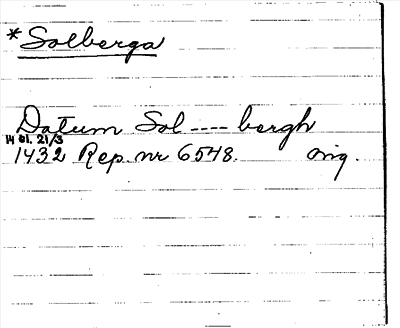 *Solberga
Datum Sol ---- bergh
14 01. 21/3
1432 Rep. nr 6548. orig.